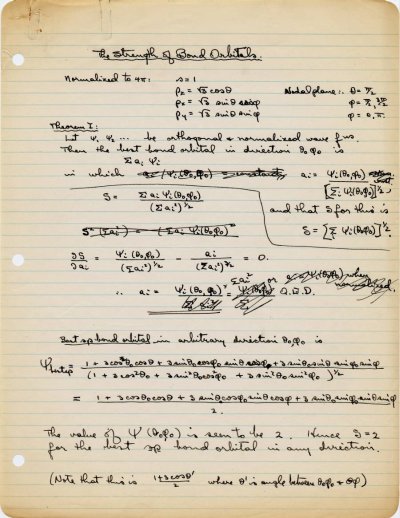 The Strength of Bond Orbitals.
Normalized to 4π: s = 1
p_z = √3 cosθ Nodal plane: θ = π/2
p_x = √3 sinθ cosφ φ = π/2, 3π/2
p_y = √3 sinθ sinφ φ = 0, π.
Theorem I:
Let ψ₁ ψ₂ ... be orthogonal & normalized wave fns.
Then the best bond orbital in direction θ₀φ₀ is
Σ aᵢ ψᵢ
in which aᵢ = ψᵢ(θ₀φ₀) / [Σᵢ ψᵢ²(θ₀φ₀)]^½,
S = Σ aᵢ ψᵢ(θ₀φ₀) / (Σ aᵢ²)^½ and that S for this is
S = [Σ ψᵢ²(θ₀φ₀)]^½.
∂S/∂aᵢ = ψᵢ(θ₀φ₀) / (Σ aᵢ²)^½ − aᵢ / (Σ aᵢ²)^3/2 = 0.
∴ aᵢ = Q.E.D.
Best sp bond orbital in arbitrary direction θ₀φ₀ is
ψ best sp = 1 + 3 cosθ₀ cosθ + 3 sinθ₀ cosφ₀ sinθ cosφ + 3 sinθ₀ sinθ sinφ₀ sinφ / (1 + 3 cos²θ₀ + 3 sin²θ₀ cos²φ₀ + 3 sin²θ₀ sin²φ₀)^½
= 1 + 3 cosθ₀ cosθ + 3 sinθ₀ cosφ₀ sinθ cosφ + 3 sinθ₀ sinφ₀ sinθ sinφ / 2.
The value of ψ(θ₀φ₀) is seen to be 2. Hence S = 2
for the best sp bond orbital in any direction.
(Note that this is 1+3cosθ' / 2 where θ' is angle between θ₀φ₀ & θφ)